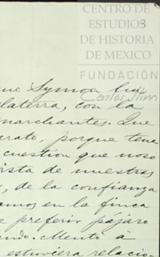 CENTRO DE
ESTUDIOS
DE HISTORIA
DE MEXICO
FUNDACIÓN
Carlos Slim
3
que Symon
laterra, con la
marchantes. Que
crate, porque tena
cuestion que noso
ista de nuestros
, de la confianza
amos en la finca
e preferir pájaro
ando. Mente á
estuviera relacio